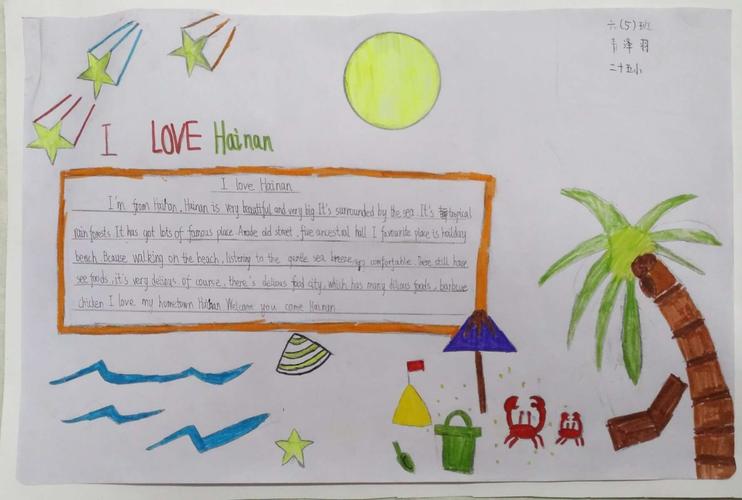 六(5)班
泽羽
二十五小
I LOVE Hainan
I love Hainan
I'm from Hainan. Hainan is very beautiful and very big. It's surrounded by the sea. It's tropical
rain forests. It has got lots of famous place. Arcade old street, five ancestral hall. I favourite place is holiday
beach. Bcause, walking on the beach, listening to the gentle sea breeze, comfortable. There still have
see foods, it's very delicius. of course, there's delious food city, which has many dilious foods, barbcue
chicken. I love my hometown Hainan. Welcome you come Hainan